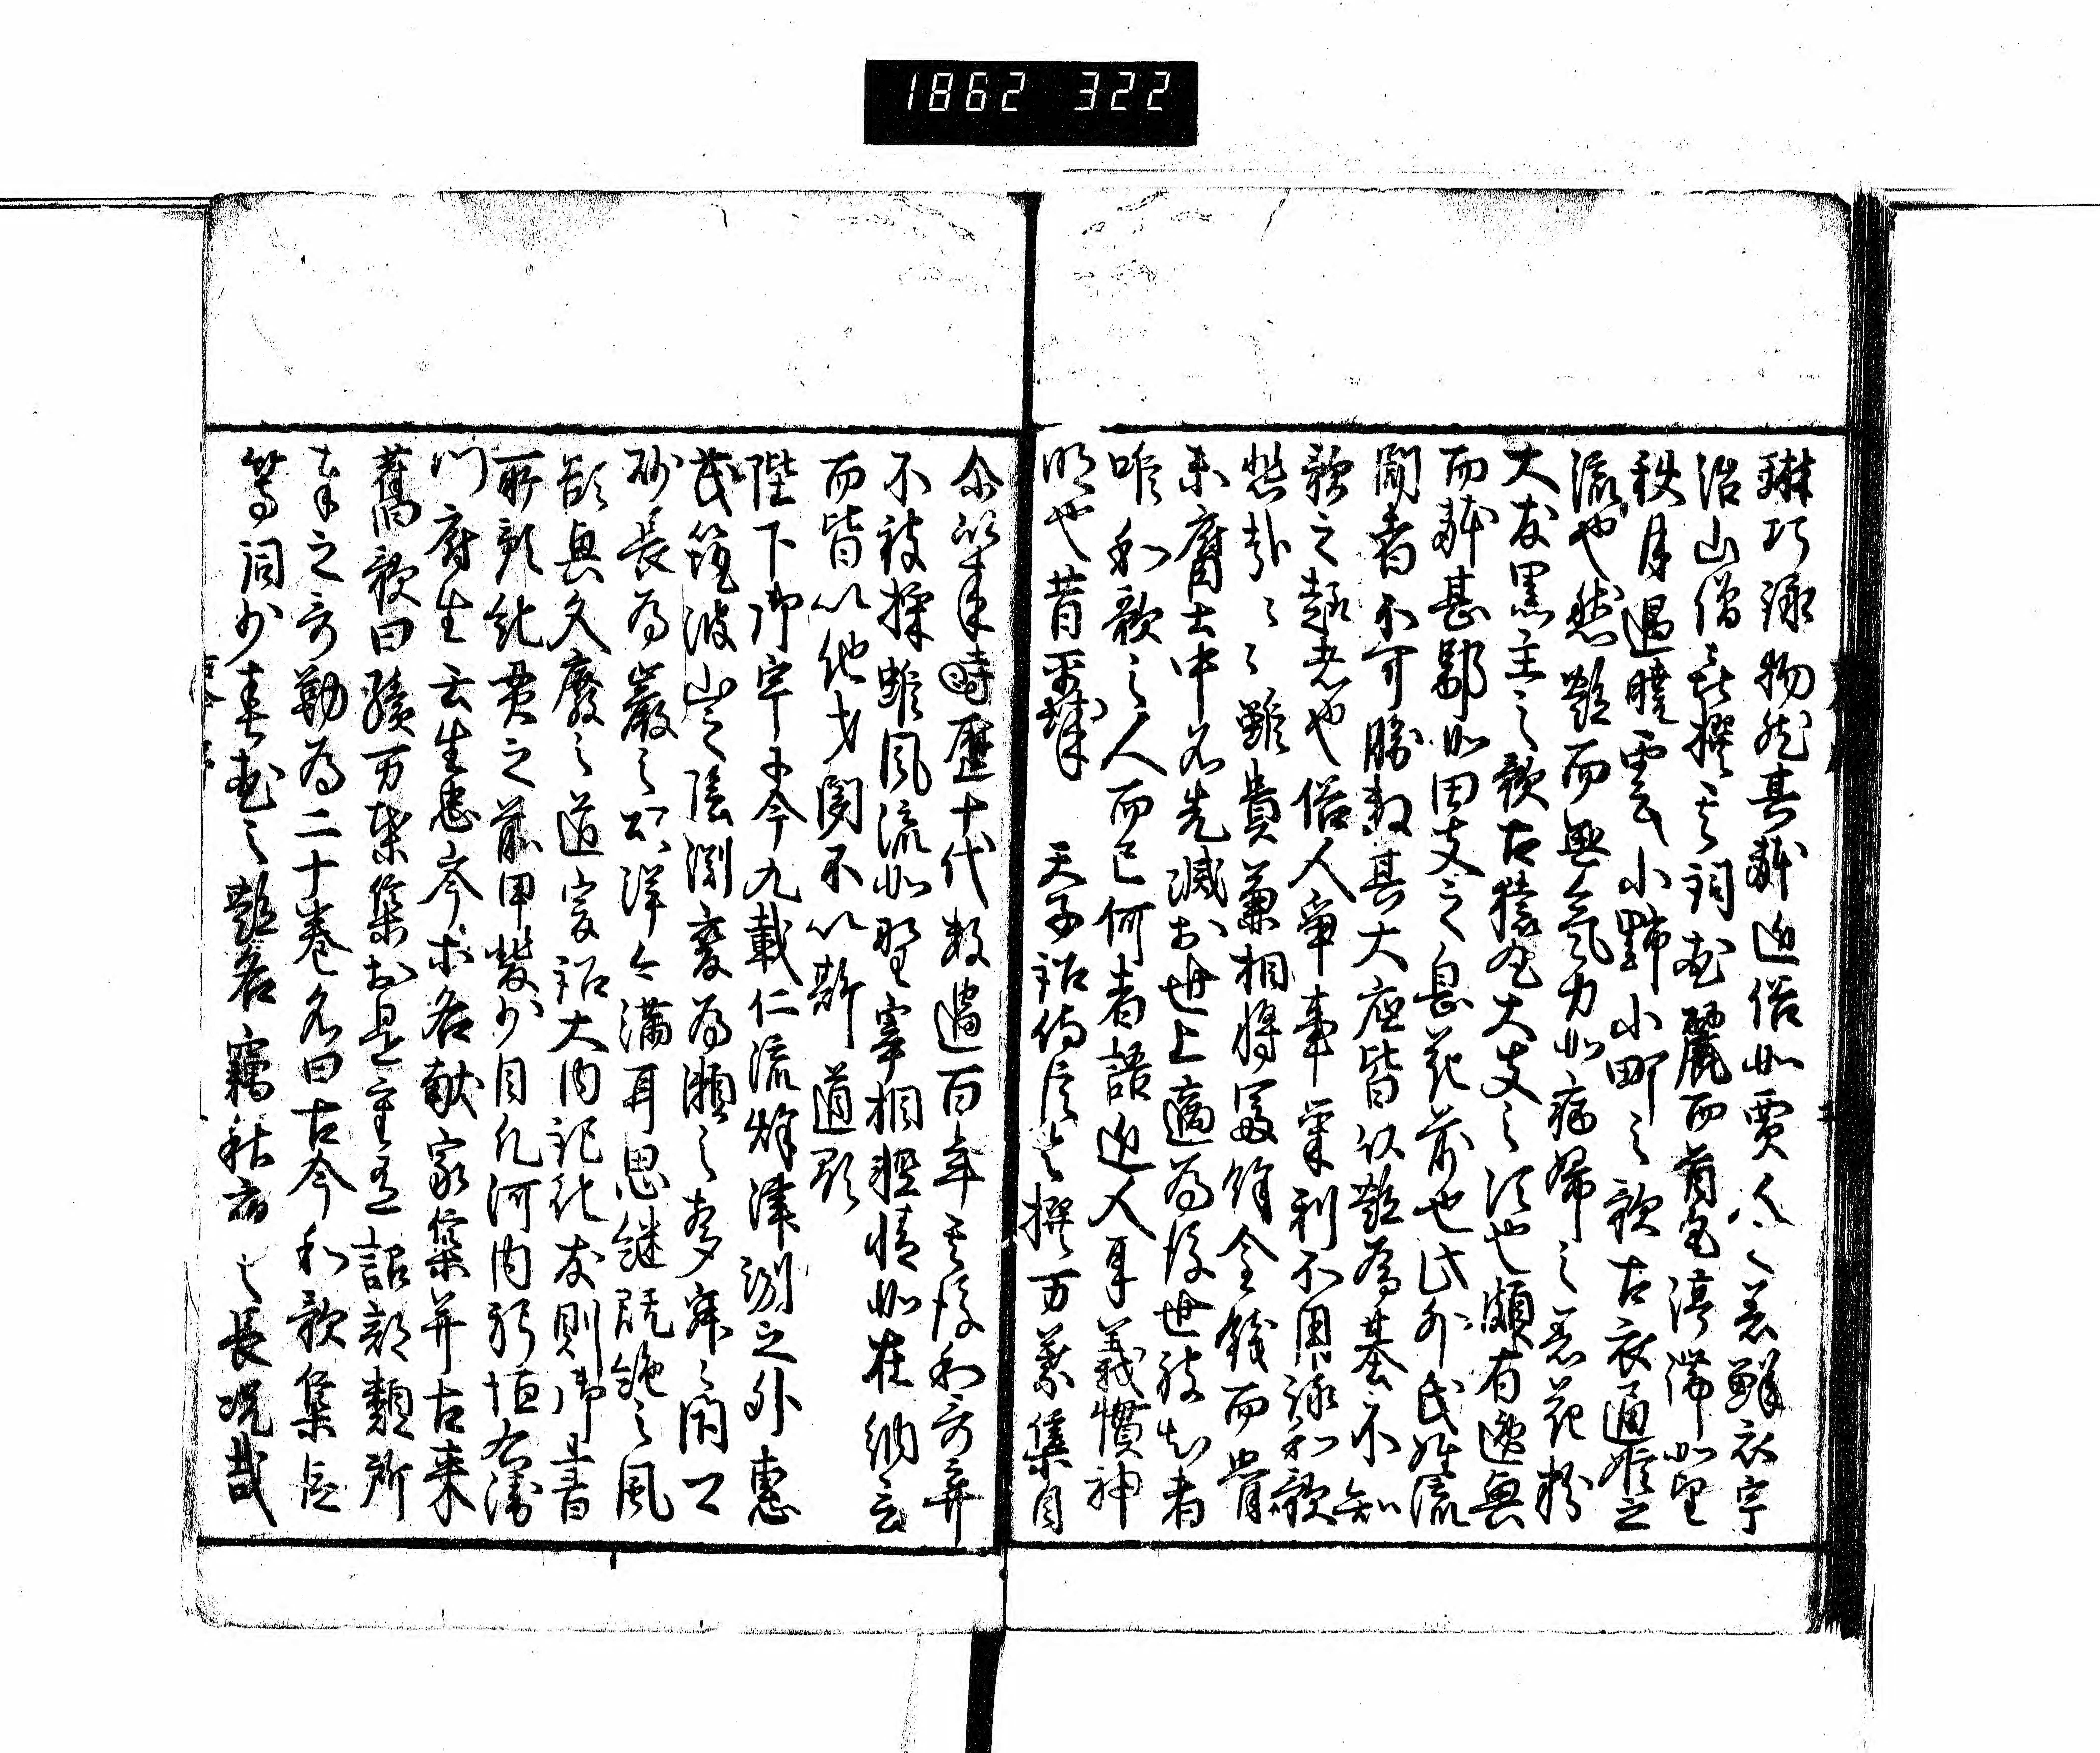 1862 322
琳巧詠物然其躰近俗如賈人之著鮮衣宇
治山僧喜撰其詞花麗而首尾渟滞如望
秋月遇曉雲小野小町之歌古衣通姫之
流也然艶而無氣力如病婦之着花粉
大友黒主之歌古猿丸大夫之次也頗有逸興
而躰甚鄙如田夫之息花前也此外氏姓流
聞者不可勝数其大底皆以艶為基不知
歌之趣者也俗人争事栄利不用詠和歌
悲哉々々雖貴兼相将冨餘金銭而骨
未腐土中名先滅於世上適為後世被知者
唯和歌之人而已何者語近人耳義慣神
明也昔平城 天子詔侍臣令撰万葉集自
尓以来時歴十代数過百年其後和哥弃
不被採雖風流如野宰相軽情如在納言
而皆以他才聞不以斯道顕
陛下御宇于今九載仁流秋津洲之外恵
茂筑波山之陰淵変為瀬之声寂々閇口
砂長為巌之頌洋々満耳思継既絶之風
欲興久廃之道爰詔大内記紀友則御書
所預紀貫之前甲斐少目凡河内躬恒右衛
門府生壬生忠岑等各献家集并古来
舊歌曰續万葉集於是重有詔部類所
奉之哥勒為二十巻名曰古今和歌集臣
等詞少春花之艶名竊秋夜之長况哉